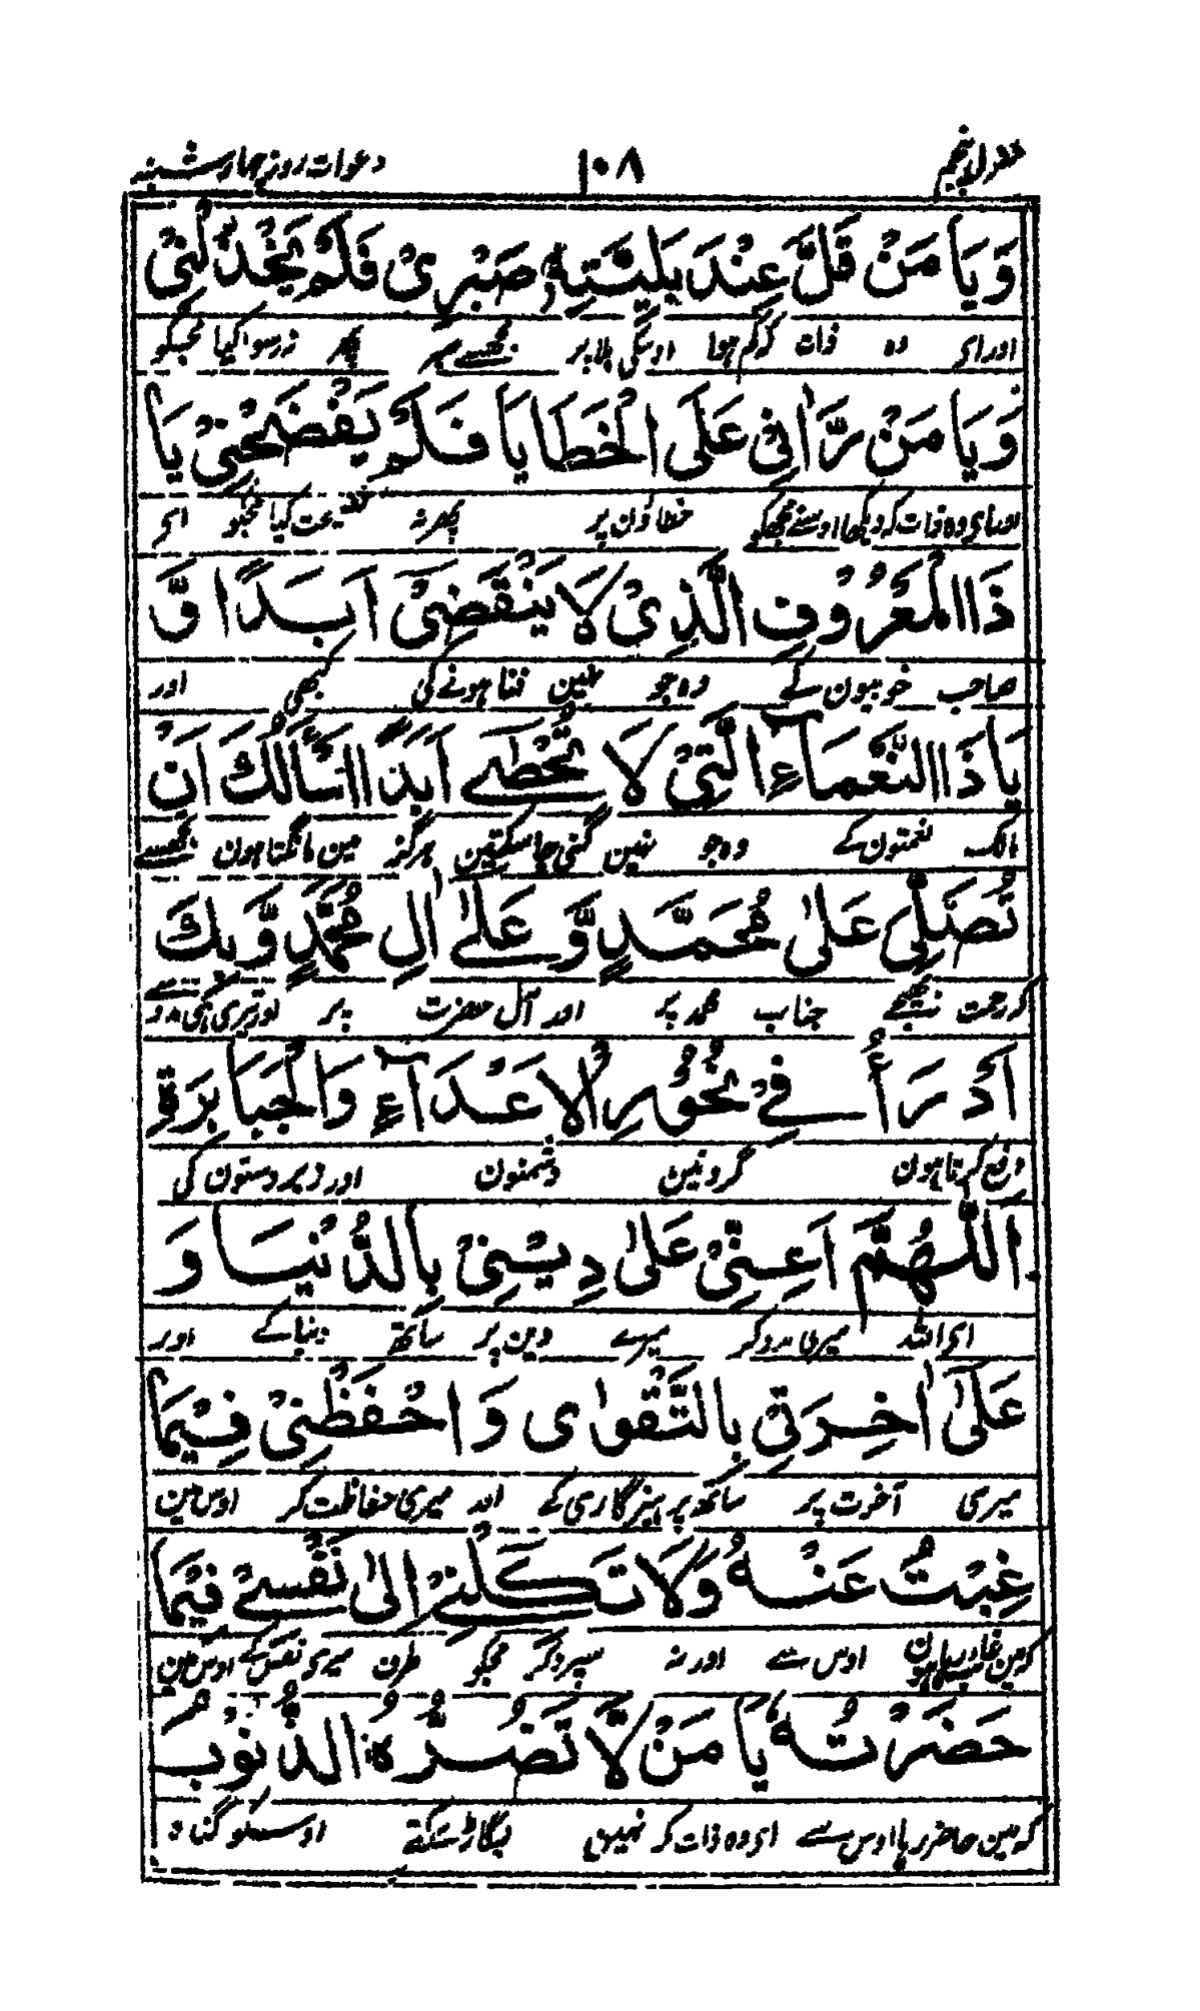 منزل پنجم ١٠٨ دعوات روز چہارشنبہ
وَيَا مَنْ قَلَّ عِنْدَ بَلِيَّتِهٖ صَبْرِىْ فَلَمْ يَخْذُلْنِىْ
اور اى وہ ذات کہ کم ہوا اوسکی بلا پر مجھسے صبر پھر نہ رسوا کیا مجھکو
وَيَا مَنْ رَّاٰنِىْ عَلَى الْخَطَايَا فَلَمْ يَفْضَحْنِىْ يَا
اور اى وہ ذات کہ دیکھا اوسنے مجھکو خطاؤن پر پھر نہ فضیحت کیا مجھکو اى
ذَا الْمَعْرُوْفِ الَّذِىْ لَا يَنْقَضِىْٓ اَبَدًا وَّ
صاحب خوبیون کے وہ جو نہین فنا ہونے کی کبھی اور
يَا ذَا النَّعْمَآءِ الَّتِىْ لَا تُحْصٰے اَبَدًا اَسْأَلُكَ اَنْ
مالک نعمتون کے وہ جو نہین گنی جا سکتین ہرگز مین مانگتا ہون تجھسے
تُصَلِّىَ عَلٰى مُحَمَّدٍ وَّعَلٰے اٰلِ مُحَمَّدٍ وَّبِكَ
کہ رحمت بھیجیے جناب محمد پر اور آل حضرت پر اور تیری ہی مدد سے
اَدْرَأُ فِے نُحُوْرِ الْاَعْدَآءِ وَالْجَبَابِرَةِ
دفع کرتا ہون گردنین دشمنون اور زبردستون کی
اَللّٰهُمَّ اَعِنِّىْ عَلٰى دِيْنِىْ بِالدُّنْيَا وَ
اى اللہ میری مدد کر میرے دین پر ساتھ دنیا کے اور
عَلٰٓى اٰخِرَتِىْ بِالتَّقْوٰى وَاحْفَظْنِىْ فِيْمَا
میری آخرت پر ساتھ پرہیزگاری کے اور میری حفاظت کر اوس مین
غِبْتُ عَنْهُ وَلَا تَكِلْنِىْ اِلٰى نَفْسِىْ فِيْمَا
کہ مین غائب رہا ہون اوس سے اور نہ سپرد کر مجکو طرف میری نفس کے اوس مین
حَضَرْتُهٗ يَا مَنْ لَّا تَضُرُّهُ الذُّنُوْبُ
کہ مین حاضر رہا اوس سے اى وہ ذات کہ نہین بگاڑ سکتے اوسکو گناہ